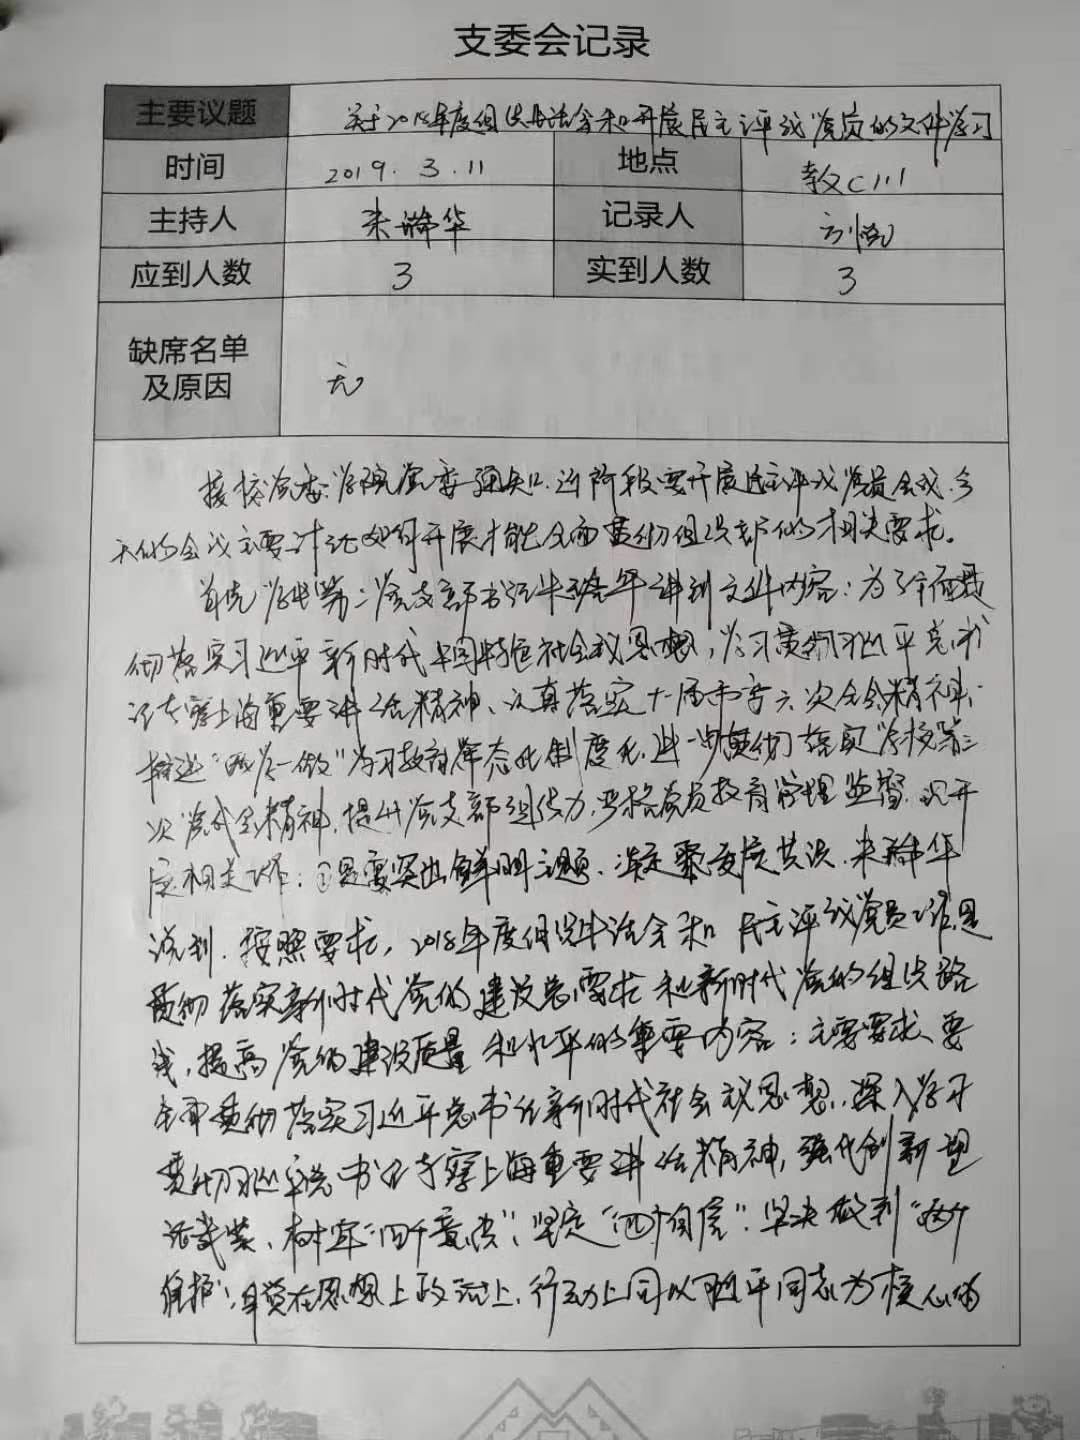 支委会记录
主要议题 关于2018年度组织生活会和开展民主评议党员的文件学习
时间 2019.3.11 地点 教C111
主持人 宋瑞华 记录人 刘悦
应到人数 3 实到人数 3
缺席名单
及原因 无
接校党委、学院党委通知,近阶段要开展民主评议党员会议,今
天的会议主要讨论如何开展才能全面贯彻组织部的相关要求。
首先 学生第二党支部书记 讲到文件内容:为了全面贯
彻落实习近平新时代中国特色社会主义思想,学习贯彻习近平总书
记考察上海重要讲话精神、认真落实十一届市委六次全会精神,
推进“两学一做”学习教育常态化制度化,进一步贯彻落实学校第三
次党代会精神,提升党支部组织力,严格党员教育管理监督,现开
展相关工作:①是要突出鲜明主题、凝聚发展共识.
谈到,按照要求,2018年度组织生活会和民主评议党员工作是
贯彻落实新时代党的建设总要求和新时代党的组织路
线,提高党的建设质量和水平的重要内容:主要要求、要
全面贯彻落实习近平总书记新时代社会主义思想,深入学习
贯彻习近平总书记考察上海重要讲话精神,强化创新理
论武装、树牢“四个意识”,坚定“四个自信”,坚决做到“两个
维护”,自觉在思想上政治上、行动上同以习近平同志为核心的